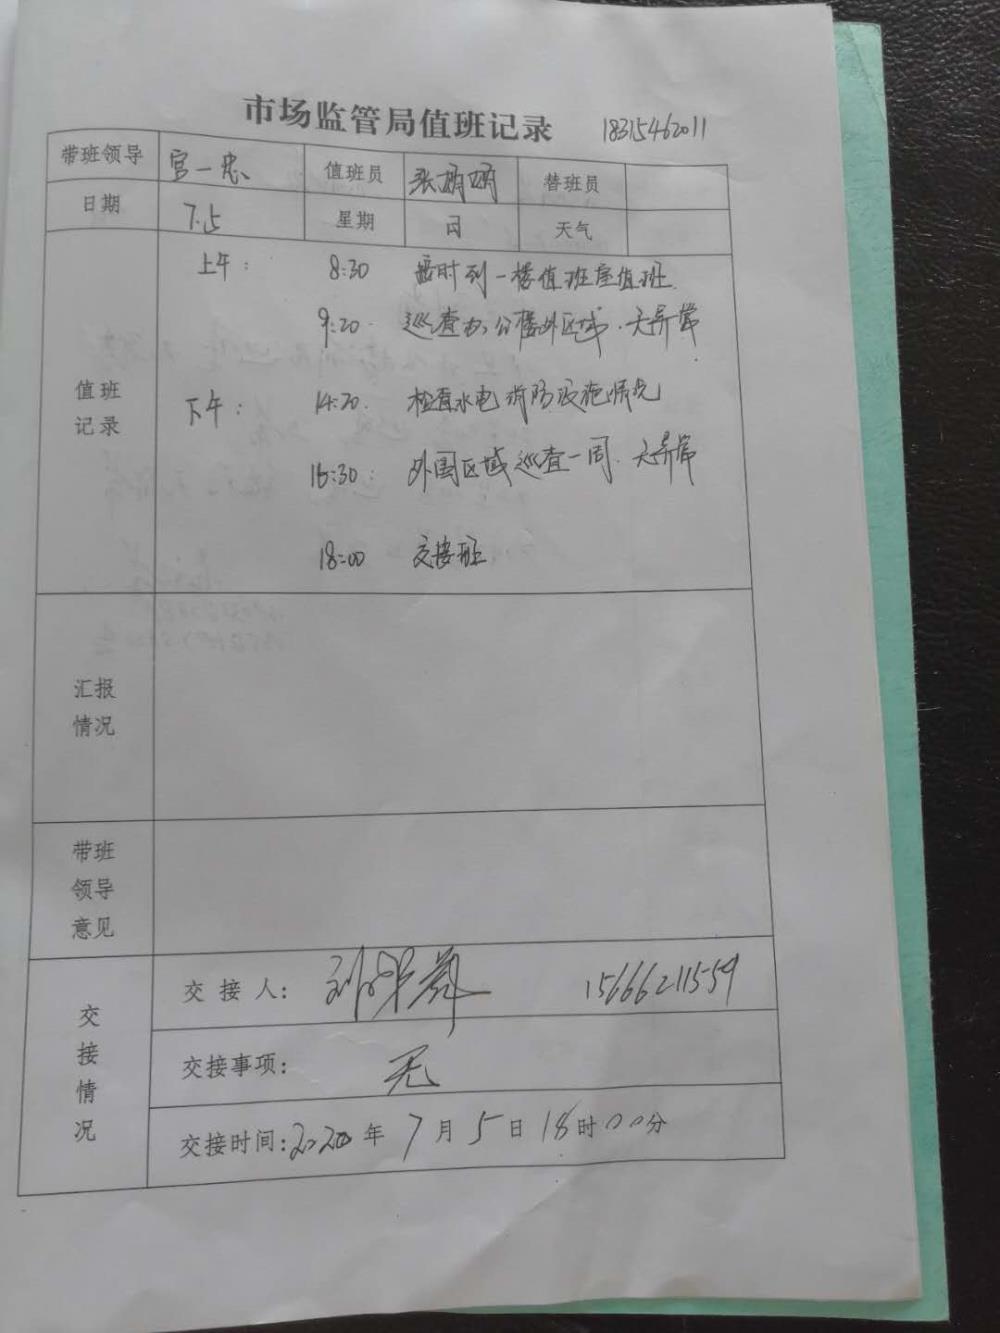 市场监管局值班记录 18315462011
带班领导 宫一忠 值班员 张 替班员
日期 7.5 星期 日 天气
值班记录
上午： 8:30 按时到一楼值班室值班
9:20. 巡查办公楼外区域.无异常
下午： 14:20. 检查水电消防设施情况
16:30: 外围区域巡查一周.无异常
18:00 交接班
汇报情况
带班领导意见
交接情况
交接人： 15666211559
交接事项： 无
交接时间：2020年7月5日18时00分